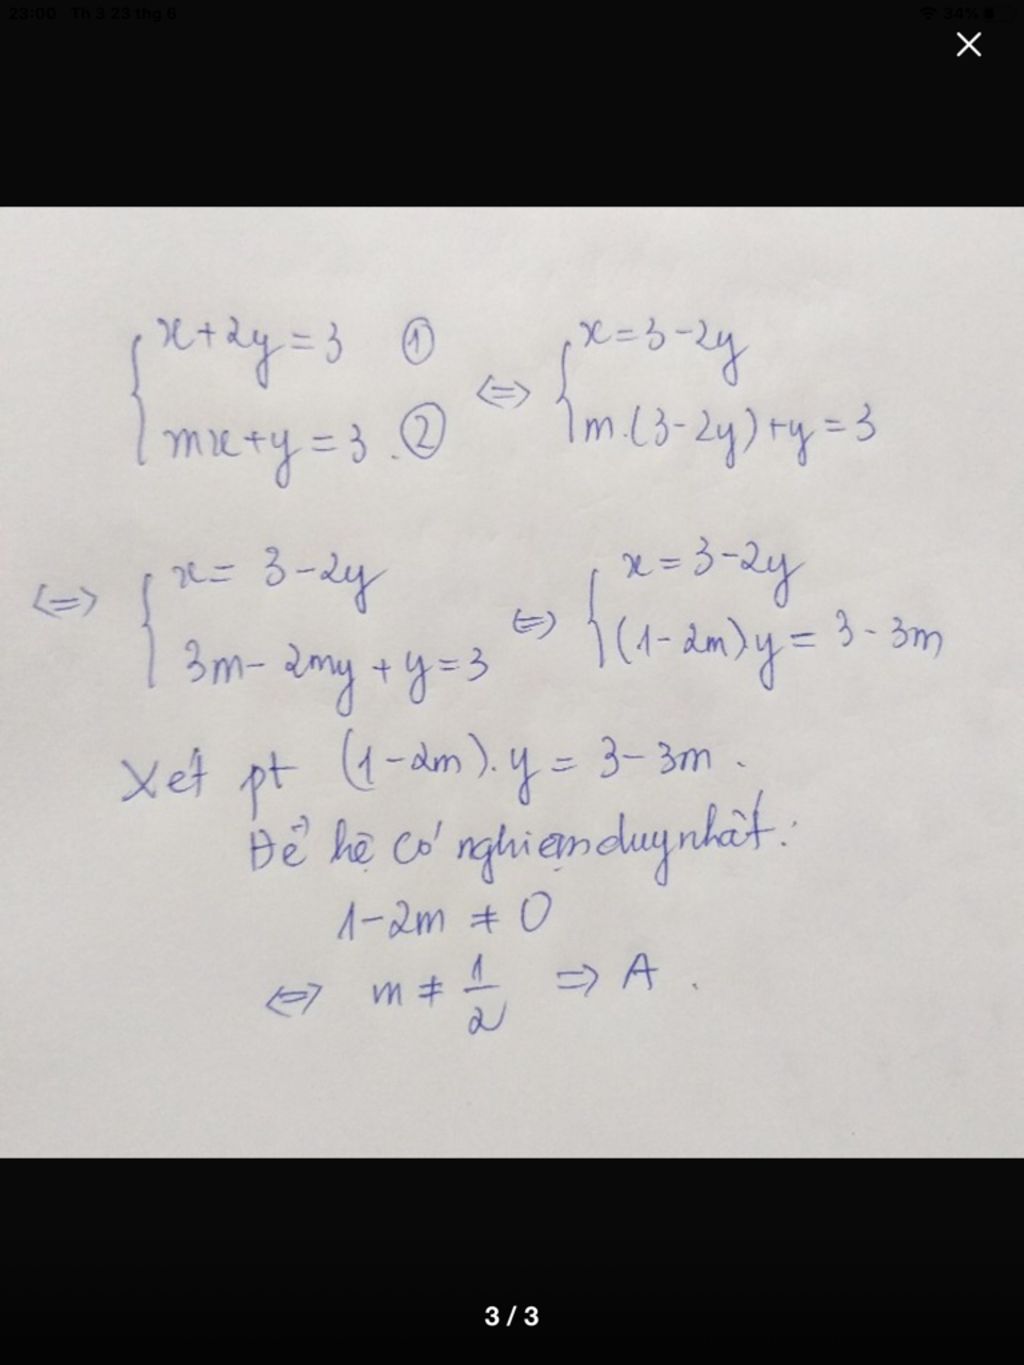 23:00 Th 3 23 thg 6 34%
x+2y=3 ① ⇔ x=3-2y
mx+y=3. ② m.(3-2y)+y=3
⇔ x= 3-2y ⇔ x=3-2y
3m-2my+y=3 (1-2m).y=3-3m
Xét pt (1-2m).y=3-3m.
Để hệ có nghiệm duy nhất:
1-2m ≠ 0
⇔ m ≠ 1/2 ⇒ A.
3 / 3